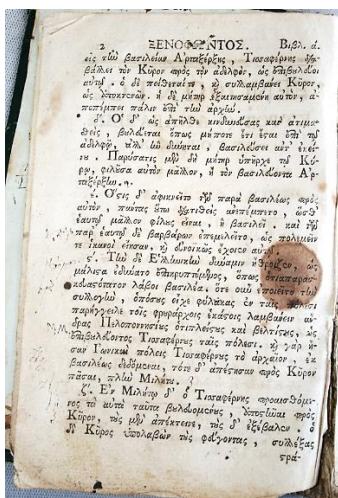 2 ΞΕΝΟΦΩΝΤΟΣ. Βιβλ. ά.
εἰς τὴν βασιλείαν Ἀρταξέρξης, Τισσαφέρνης δια-
βάλλει τὸν Κῦρον πρὸς τὸν ἀδελφὸν, ὡς ἐπιβουλεύοι
αὐτῷ. ὁ δὲ πείθεταί τε, καὶ συλλαμβάνει Κῦρον,
ὡς ἀποκτενῶν. ἡ δὲ μήτηρ ἐξαιτησαμένη αὐτὸν, ἀ-
ποπέμπει πάλιν ἐπὶ τὴν ἀρχήν.
δ΄. Ὁ δ' ὡς ἀπῆλθε κινδυνεύσας καὶ ἀτιμα-
σθεὶς, βουλεύεται ὅπως μήποτε ἔτι ἔσται ἐπὶ τῷ
ἀδελφῷ, ἀλλ' ἢν δύνηται, βασιλεύσει ἀντ' ἐκεί-
νου. Παρύσατις μὲν δὴ μήτηρ ὑπῆρχε τῷ Κύ-
ρῳ, φιλοῦσα αὐτὸν μᾶλλον, ἢ τὸν βασιλεύοντα Ἀρ-
ταξέρξην.
έ. Ὅστις δ' ἀφικνεῖτο τῶν παρὰ βασιλέως πρὸς
αὐτὸν, πάντας οὕτω διατιθεὶς ἀνεπέμπετο, ὥσθ'
ἑαυτῷ μᾶλλον φίλους εἶναι, ἢ βασιλεῖ. καὶ τῶν
παρ' ἑαυτῷ δὲ βαρβάρων ἐπεμελεῖτο, ὡς πολεμεῖν
τε ἱκανοὶ εἴησαν, καὶ εὐνοϊκῶς ἔχοιεν αὐτῷ.
ς΄. Τὴν δὲ Ἑλληνικὴν δύναμιν ἤθροιζεν, ὡς
μάλιστα ἐδύνατο ἐπικρυπτόμενος, ὅπως ὅτι ἀπαρασ-
κευότατον λάβοι βασιλέα. ὧδε οὖν ἐποιεῖτο τὴν
συλλογὴν, ὁπόσας εἶχε φυλακὰς ἐν ταῖς πόλεσι
παρήγγειλε τοῖς φρουράρχοις ἑκάστοις λαμβάνειν ἄν-
δρας Πελοποννησίους ὅτι πλείστους καὶ βελτίστους, ὡς
ἐπιβουλεύοντος Τισσαφέρνους ταῖς πόλεσι. καὶ γὰρ ἦ-
σαν Ἰωνικαὶ πόλεις Τισσαφέρνους τὸ ἀρχαῖον, ἐκ
βασιλέως δεδομέναι, τότε δ' ἀπέστησαν πρὸς Κῦρον
πᾶσαι, πλὴν Μιλήτου.
ζ΄. Ἐν Μιλήτῳ δ' ὁ Τισσαφέρνης προαισθόμε-
νος τὰ αὐτὰ ταῦτα βουλευομένους, ἀποστῆναι πρὸς
Κῦρον, τοὺς μὲν ἀπέκτεινε, τοὺς δ' ἐξέβαλεν. ὁ
δὲ Κῦρος ὑπολαβὼν τοὺς φεύγοντας, συλλέξας
στρά-